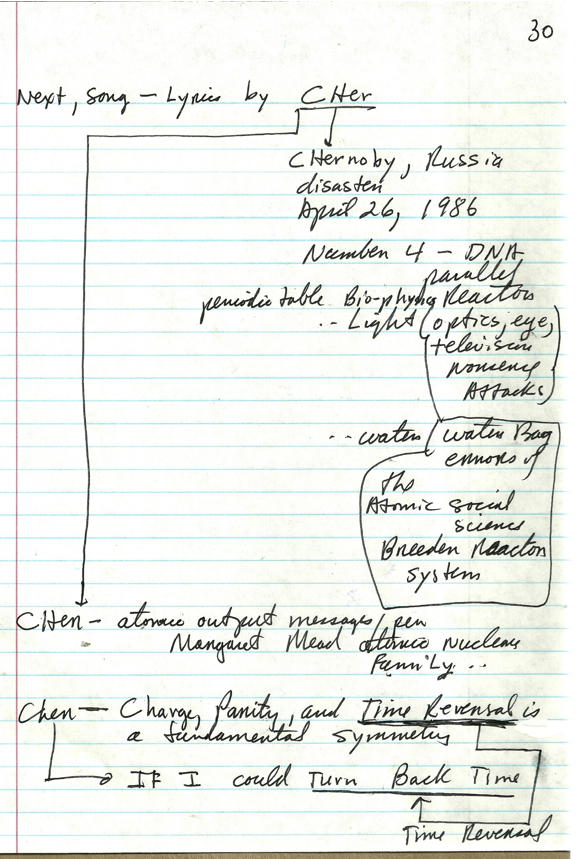 30
Next, Song – Lyrics by CHer
CHernoby, Russia
disaster
April 26, 1986
Number 4 – DNA
parallel
periodic table Bio-physics Reactor
.. Light (optics, eye,
television
nonsense
Attacks)
.. water (water Bag
errors of
the
Atomic social
science
Breeder Reactor
system
CHer – atomic output messages / per
Margaret Mead atomic nuclear
Family...
Cher – Charge, Parity, and Time Reversal is
a fundamental symmetry
IF I could Turn Back Time
Time Reversal